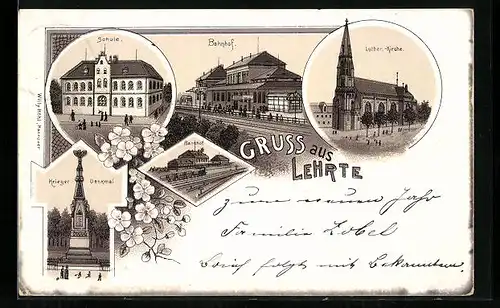 Schule.
Bahnhof.
Luther.-Kirche.
Krieger Denkmal
Bahnhof
GRUSS aus
LEHRTE
zum neuen Jahr
Familie Zobel
Brief folgt mit